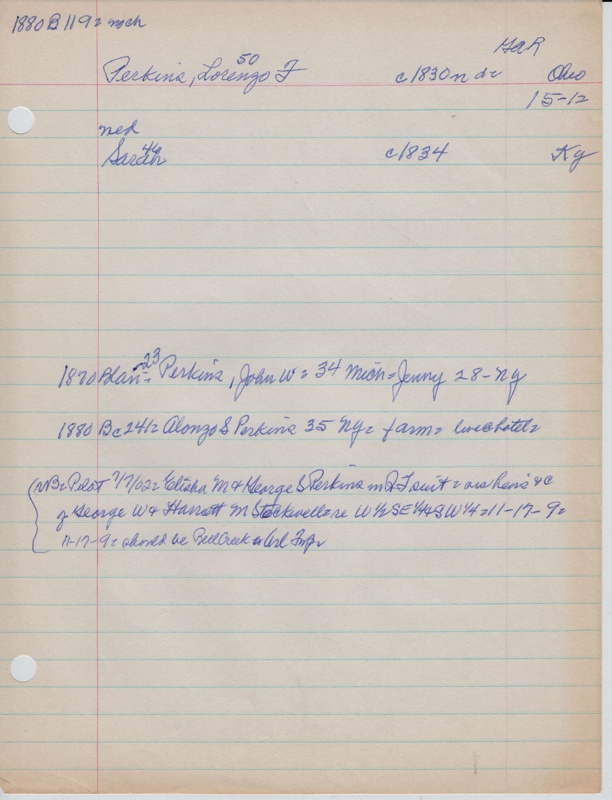 1880 B 119 = mch
G&R
50
Perkins, Lorenzo F c1830 n d = Ohio
15-12
med
46
Sarah c1834 Ky
23
1870 Blair = Perkins, John W = 34 Mich = Jenny 28 - Ny
1880 Bc 241 = Alonzo S Perkins 35 Ny = farm = live hotel =
NB = Pilot 7/17/02 = Elisha M & George S Perkins in suit = as heirs &c
of George W & Harrott M Stockwell = re W 1/2 SE 1/4 & SW 1/4 = 11-17-9 =
11-17-9 = should be Bell Creek or Arl Twp